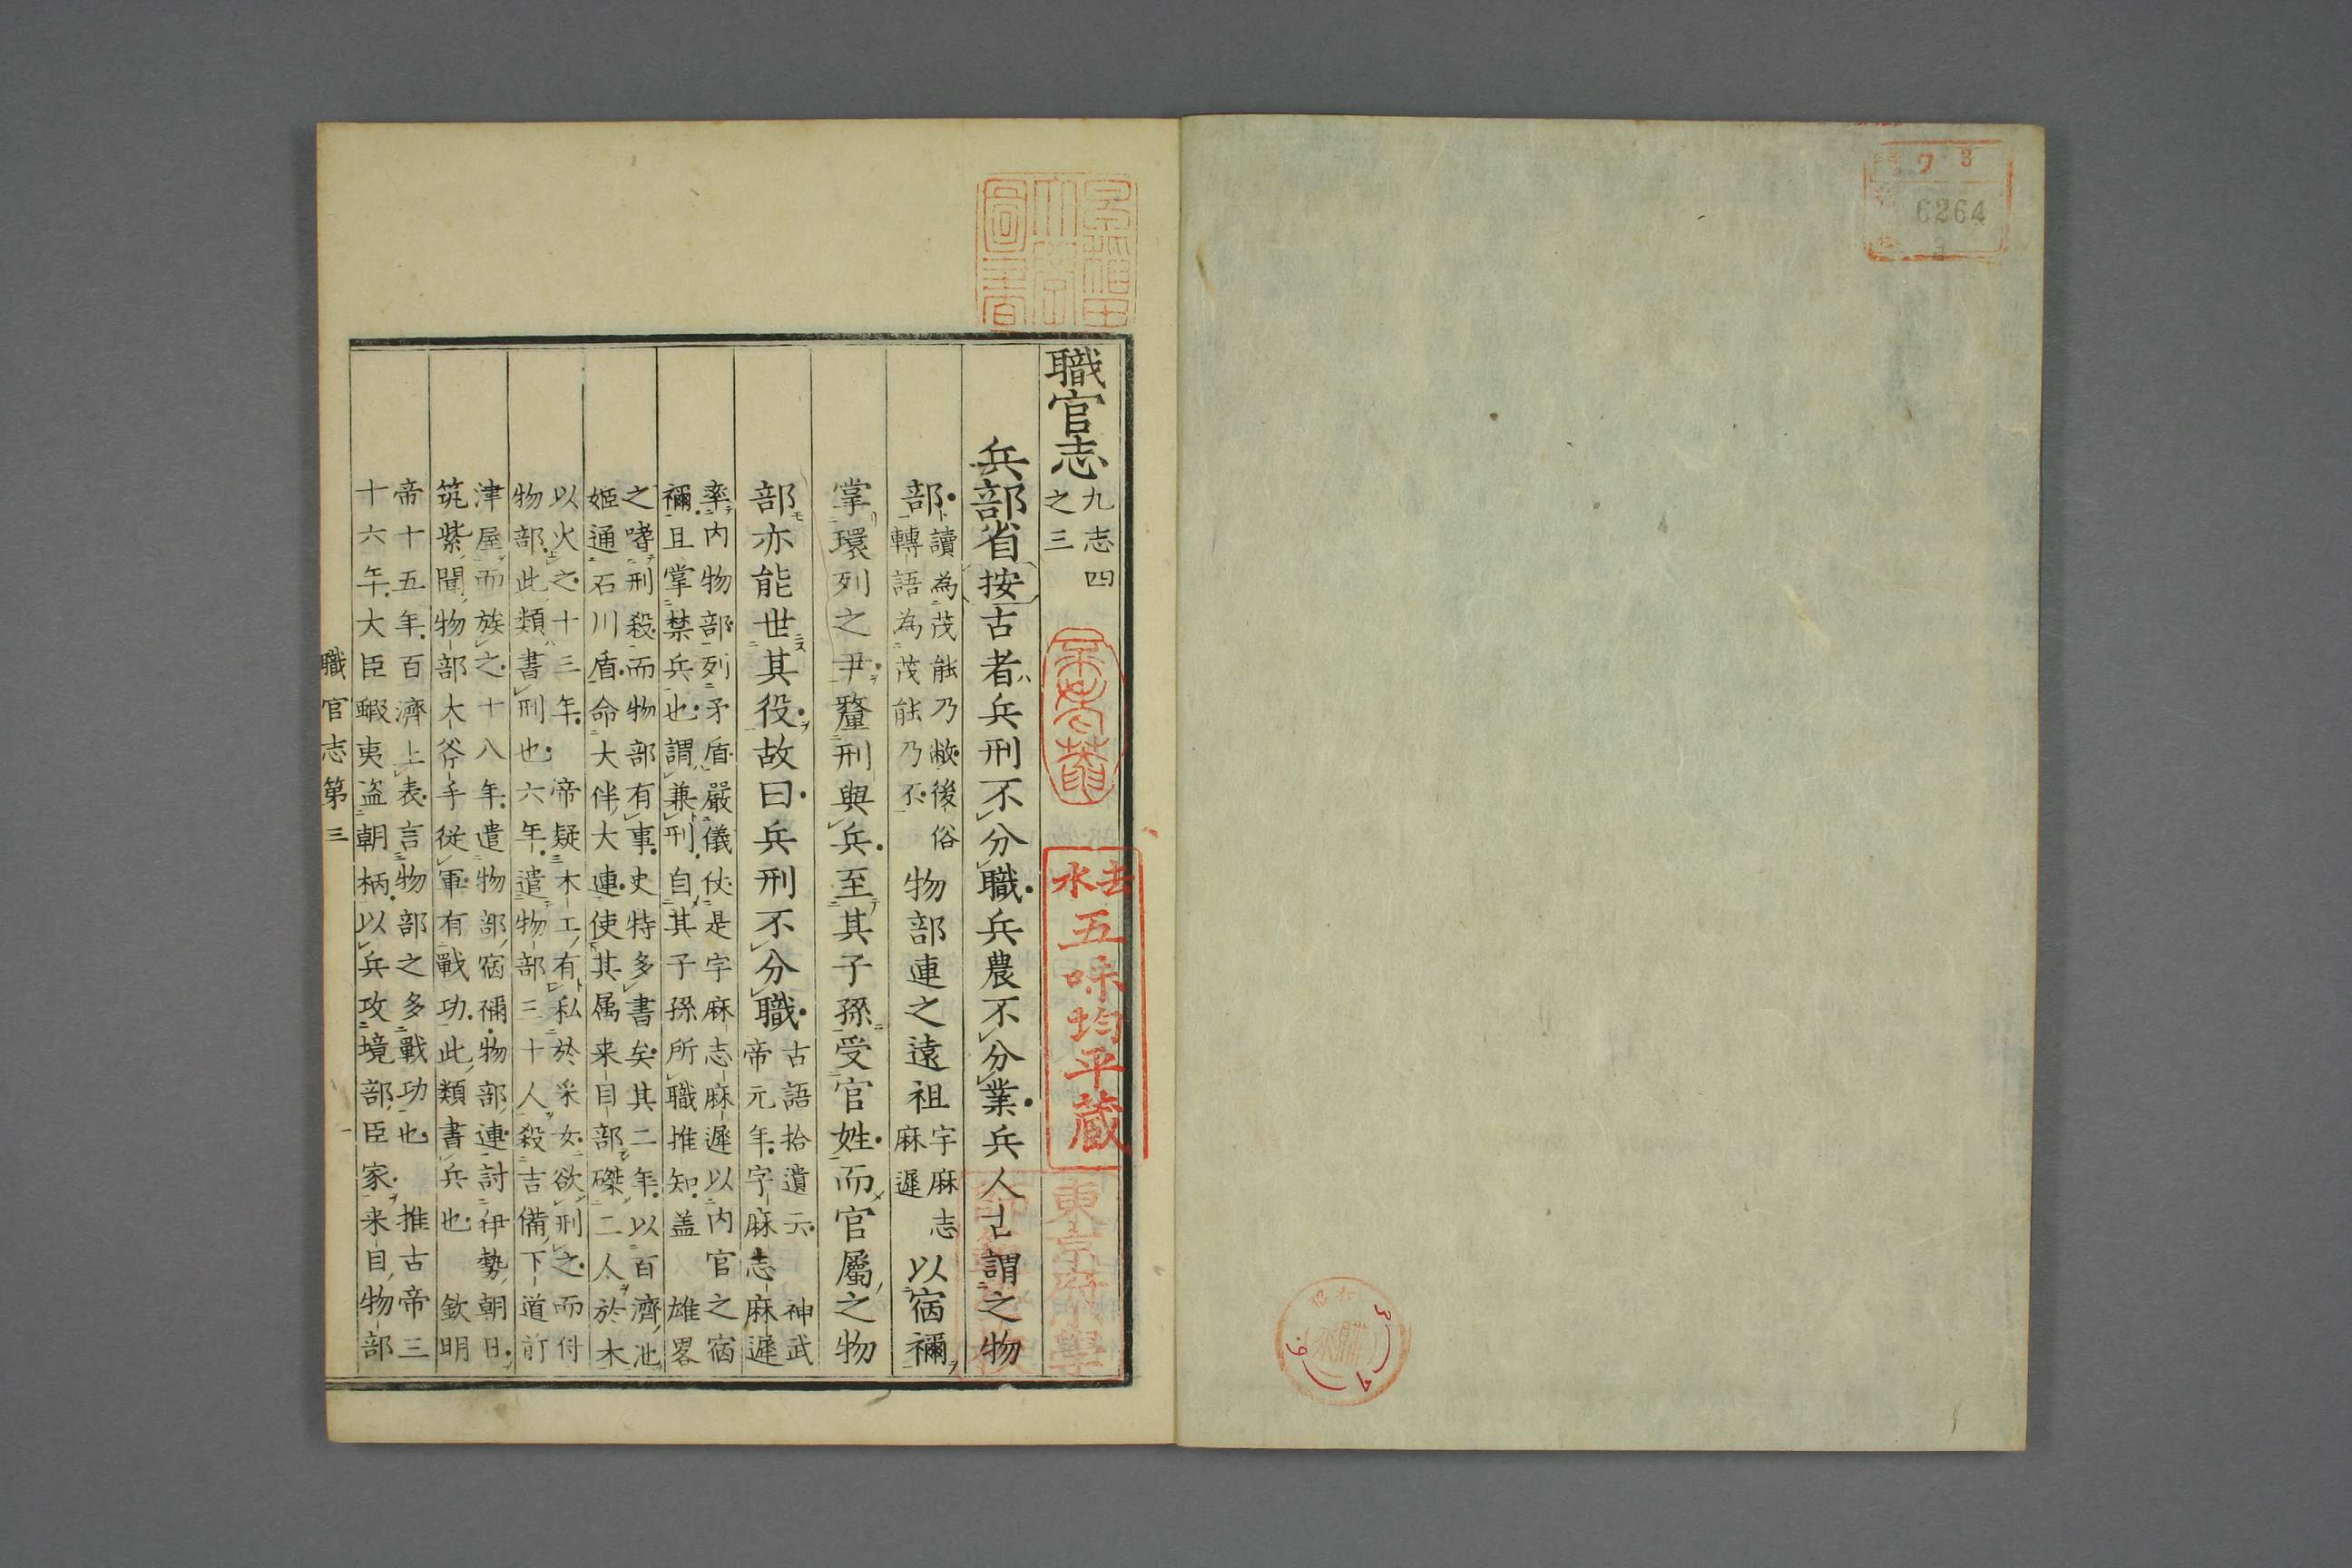 職官志 九志四
之三
兵部省 按古者兵刑不分職兵農不分業兵人古謂之物
部 讀為茂能乃敝後俗
轉語為茂能乃不
物部連之遠祖 宇麻志
麻遲
以宿禰
掌環列之尹釐刑與兵至其子孫受官姓而官屬之物
部亦能世其役故曰兵刑不分職 古語拾遺云 神武
帝元年宇麻志麻遲
率內物部列矛盾嚴儀仗是宇麻志麻遲以內官之宿
禰且掌禁兵也謂兼刑自其子孫所職推知盖 雄畧
之嗜刑殺而物部有事史特多書矣其二年以百濟池
姬通石川盾命大伴大連使其属来目部磔二人於木
以火之十三年 帝疑木工有私於采女欲刑之而付
物部此類書刑也六年遣物部三十人殺吉備下道前
津屋而族之十八年遣物部宿禰物部連討伊勢朝日
筑紫聞物部大斧手從軍有戰功此類書兵也 欽明
帝十五年百濟上表言物部之多戰功也 推古帝三
十六年大臣蝦夷盜朝柄以兵攻境部臣家来目物部
職官志第三 一
去水
五味均平蔵
東京府
圖書
7 3
6264
3